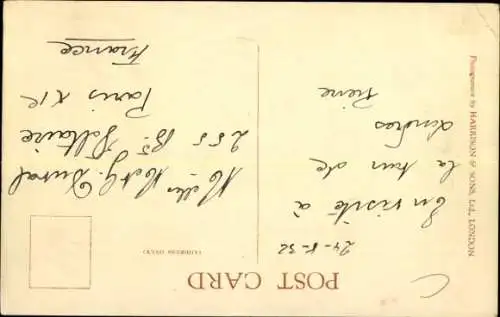 POST CARD
(ADDRESS ONLY)
24-5-32
En visite à
la tour de
Londres
Pierre
M. elles M. et G. Duval
255 Bd. Voltaire
Paris XIe
France
Photogravure by HARRISON & SONS, Ltd., LONDON